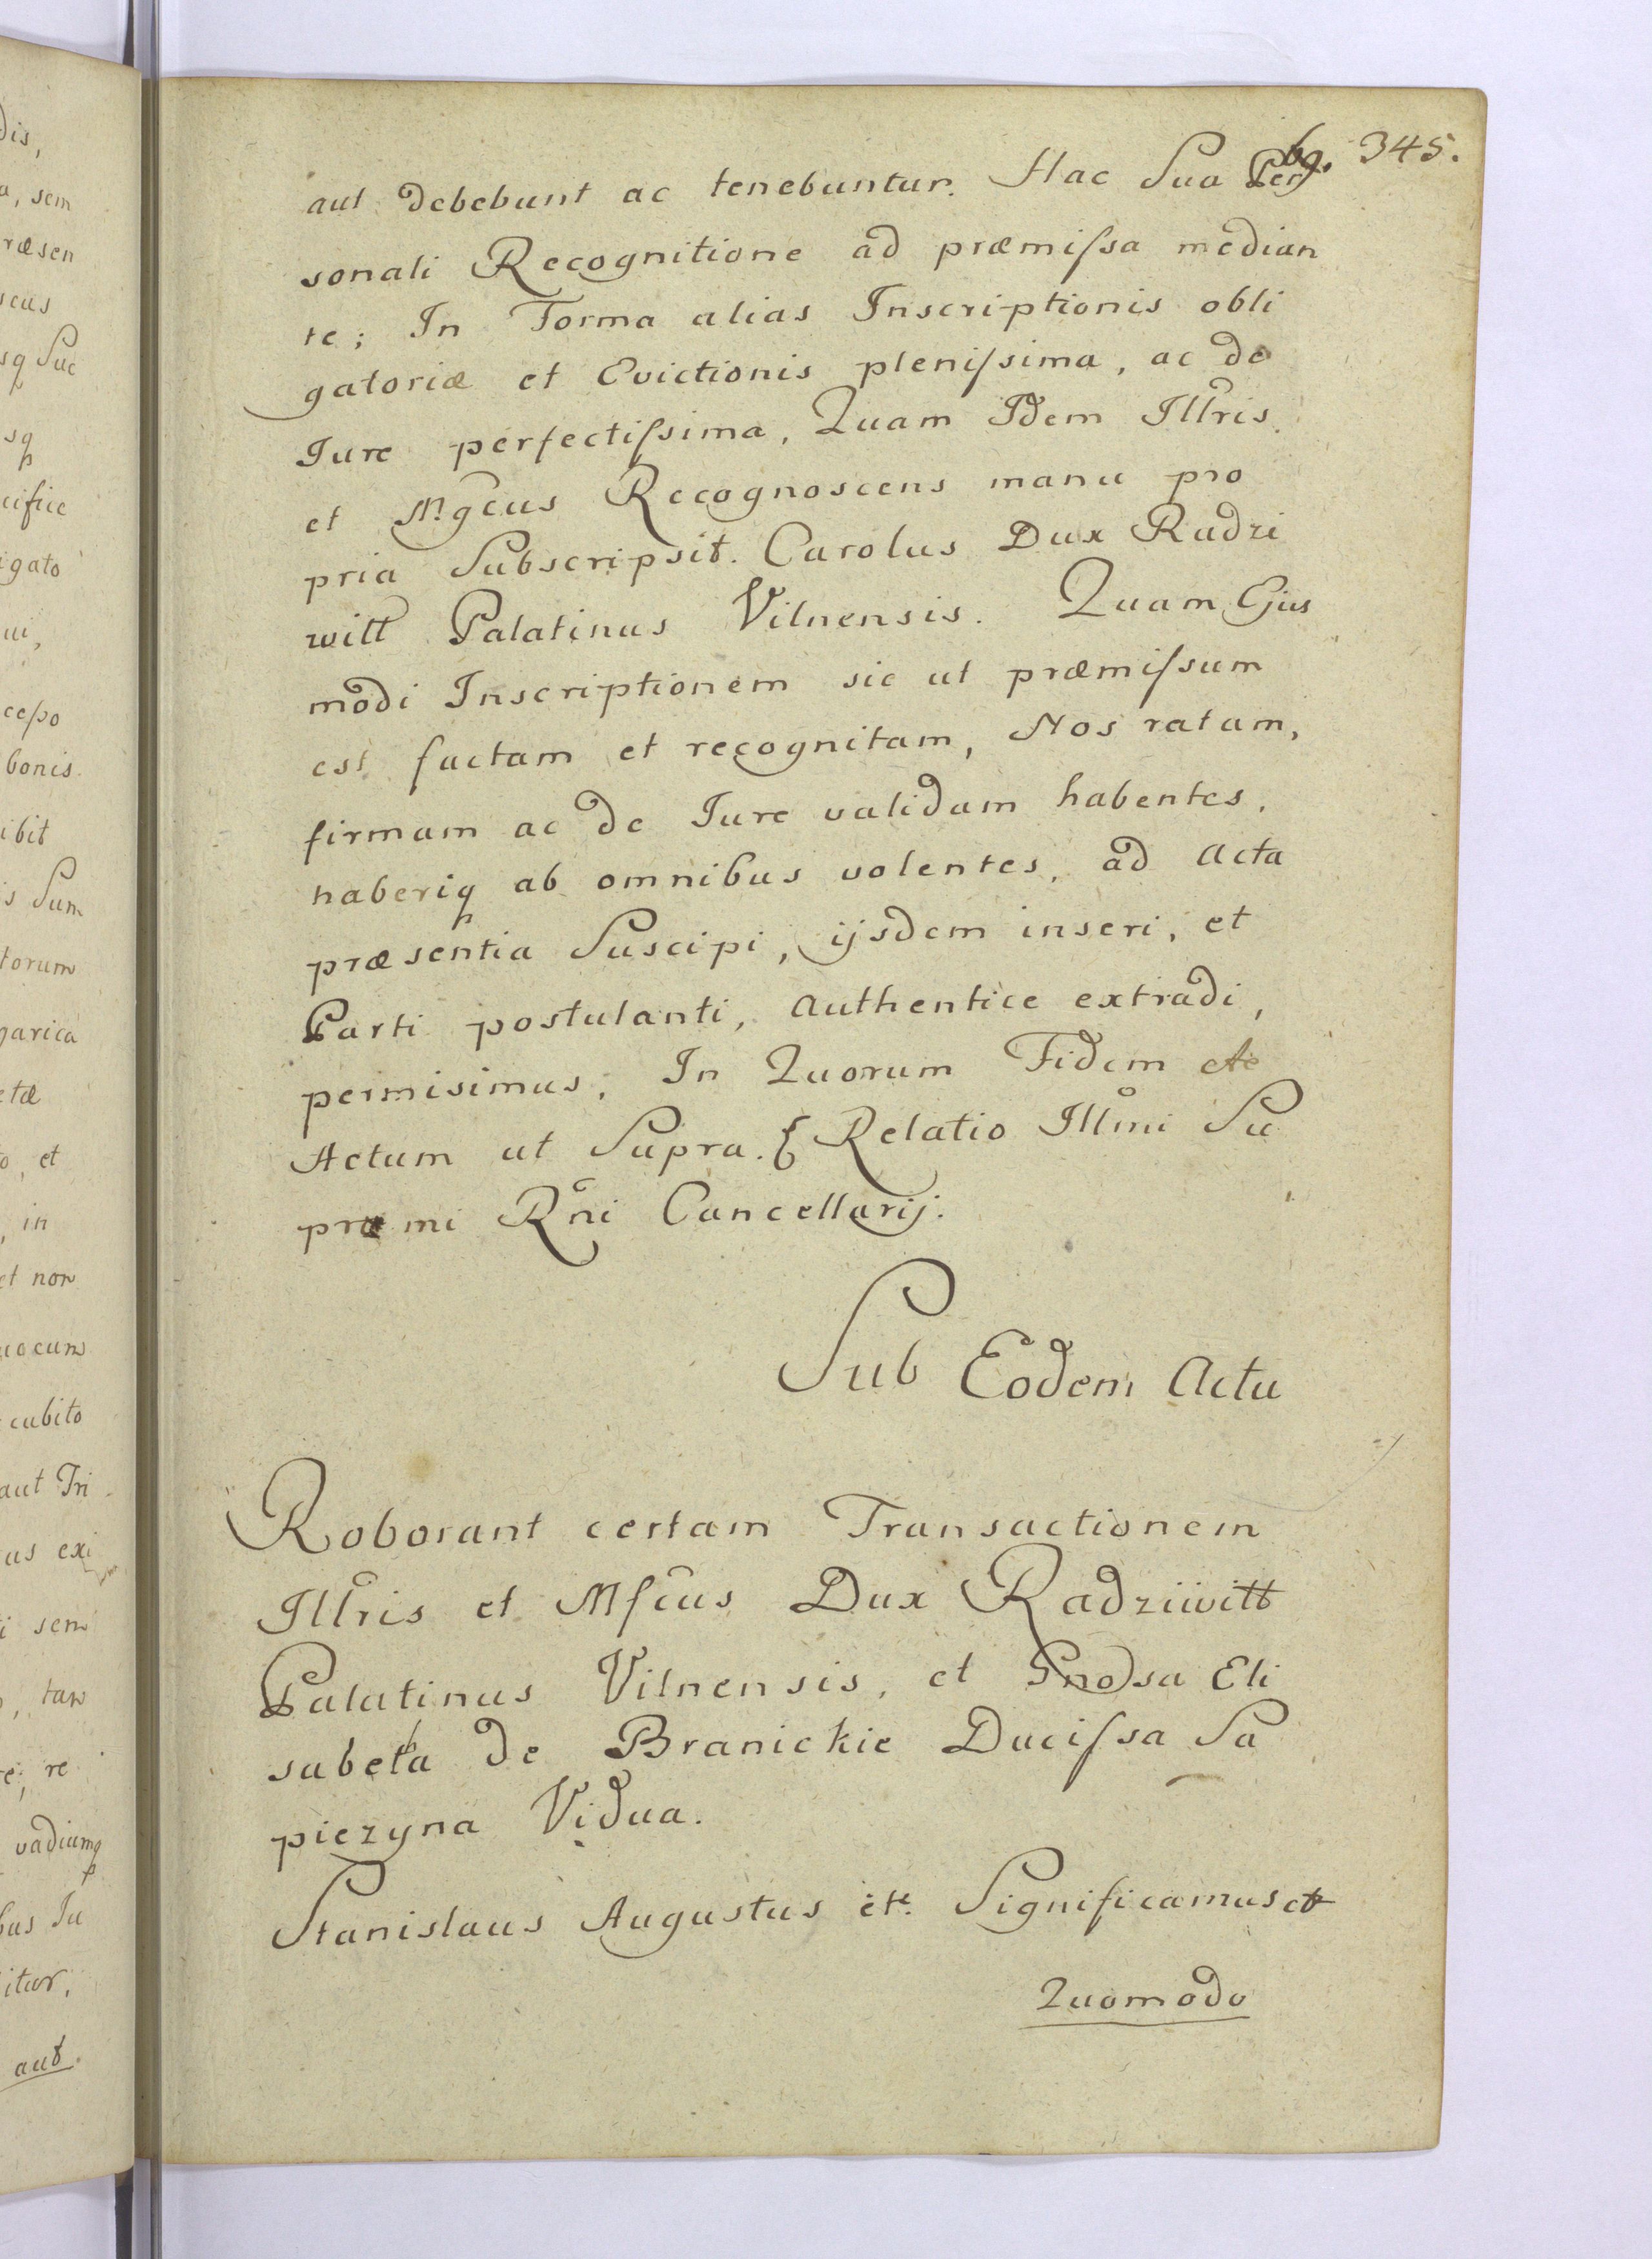 345.
aut debebunt ac tenebuntur. Hac Sua Per
sonali Recognitione ad præmiſsa median
te; In Forma alias Inscriptionis obli
gatoriæ et Evictionis pleniſsima, ac de
Jure perfectiſsima, Quam Idem Illris.
et M.gcus Recognoscens manu pro
pria Subscripsit. Carolus Dux Radzi
wiłł Palatinus Vilnensis. Quam Ejus
modi Inscriptionem sic ut præmiſsum
est factam et recognitam, Nos ratam,
firmam ac de Jure validam habentes,
haberiq ab omnibus volentes, ad Acta
præsentia Suscipi, ijsdem inseri, et
Parti postulanti, Authentice extradi,
permisimus, In Quorum Fidem etc
Actum ut Supra. Relatio Illmi Su
præmi Rni Cancellarij.
Sub Eodem Actu
Roborant certam Transactionem
Illris et Mfcus Dux Radziwiłł
Palatinus Vilnensis, et Gnosa Eli
sabetha de Branickie Duciſsa Sa
piezyna Vidua.
Stanislaus Augustus etc. Significamus etc
Quomodo
dis,
a, sem
ræsen
scus
sq Suc
sq
cifice
igato
ui,
bonis.
ibit
s Sum
torum
garica
etæ
o, et
, in
et non
uocum
cubito
aut Tri
as exi
i sem
, tam
re; re
vadiumq
bus Ju
itur,
aut